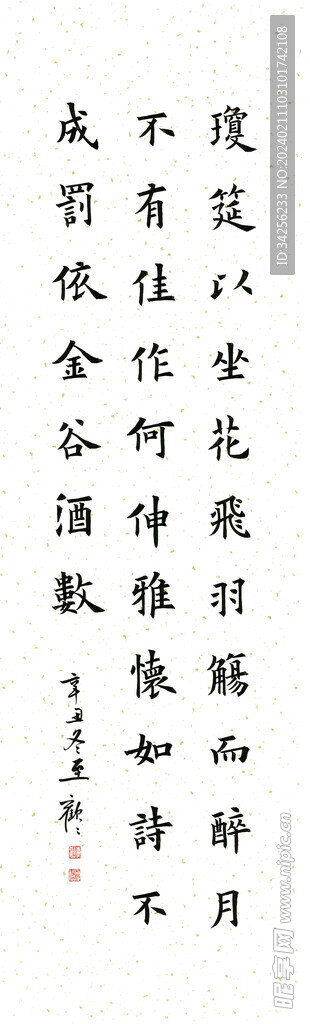 瓊筵以坐花飛羽觴而醉月
不有佳作何伸雅懷如詩不
成罰依金谷酒數
辛丑冬至
ID:34256233 NO:20240211103101742108
昵享网 www.nipic.cn